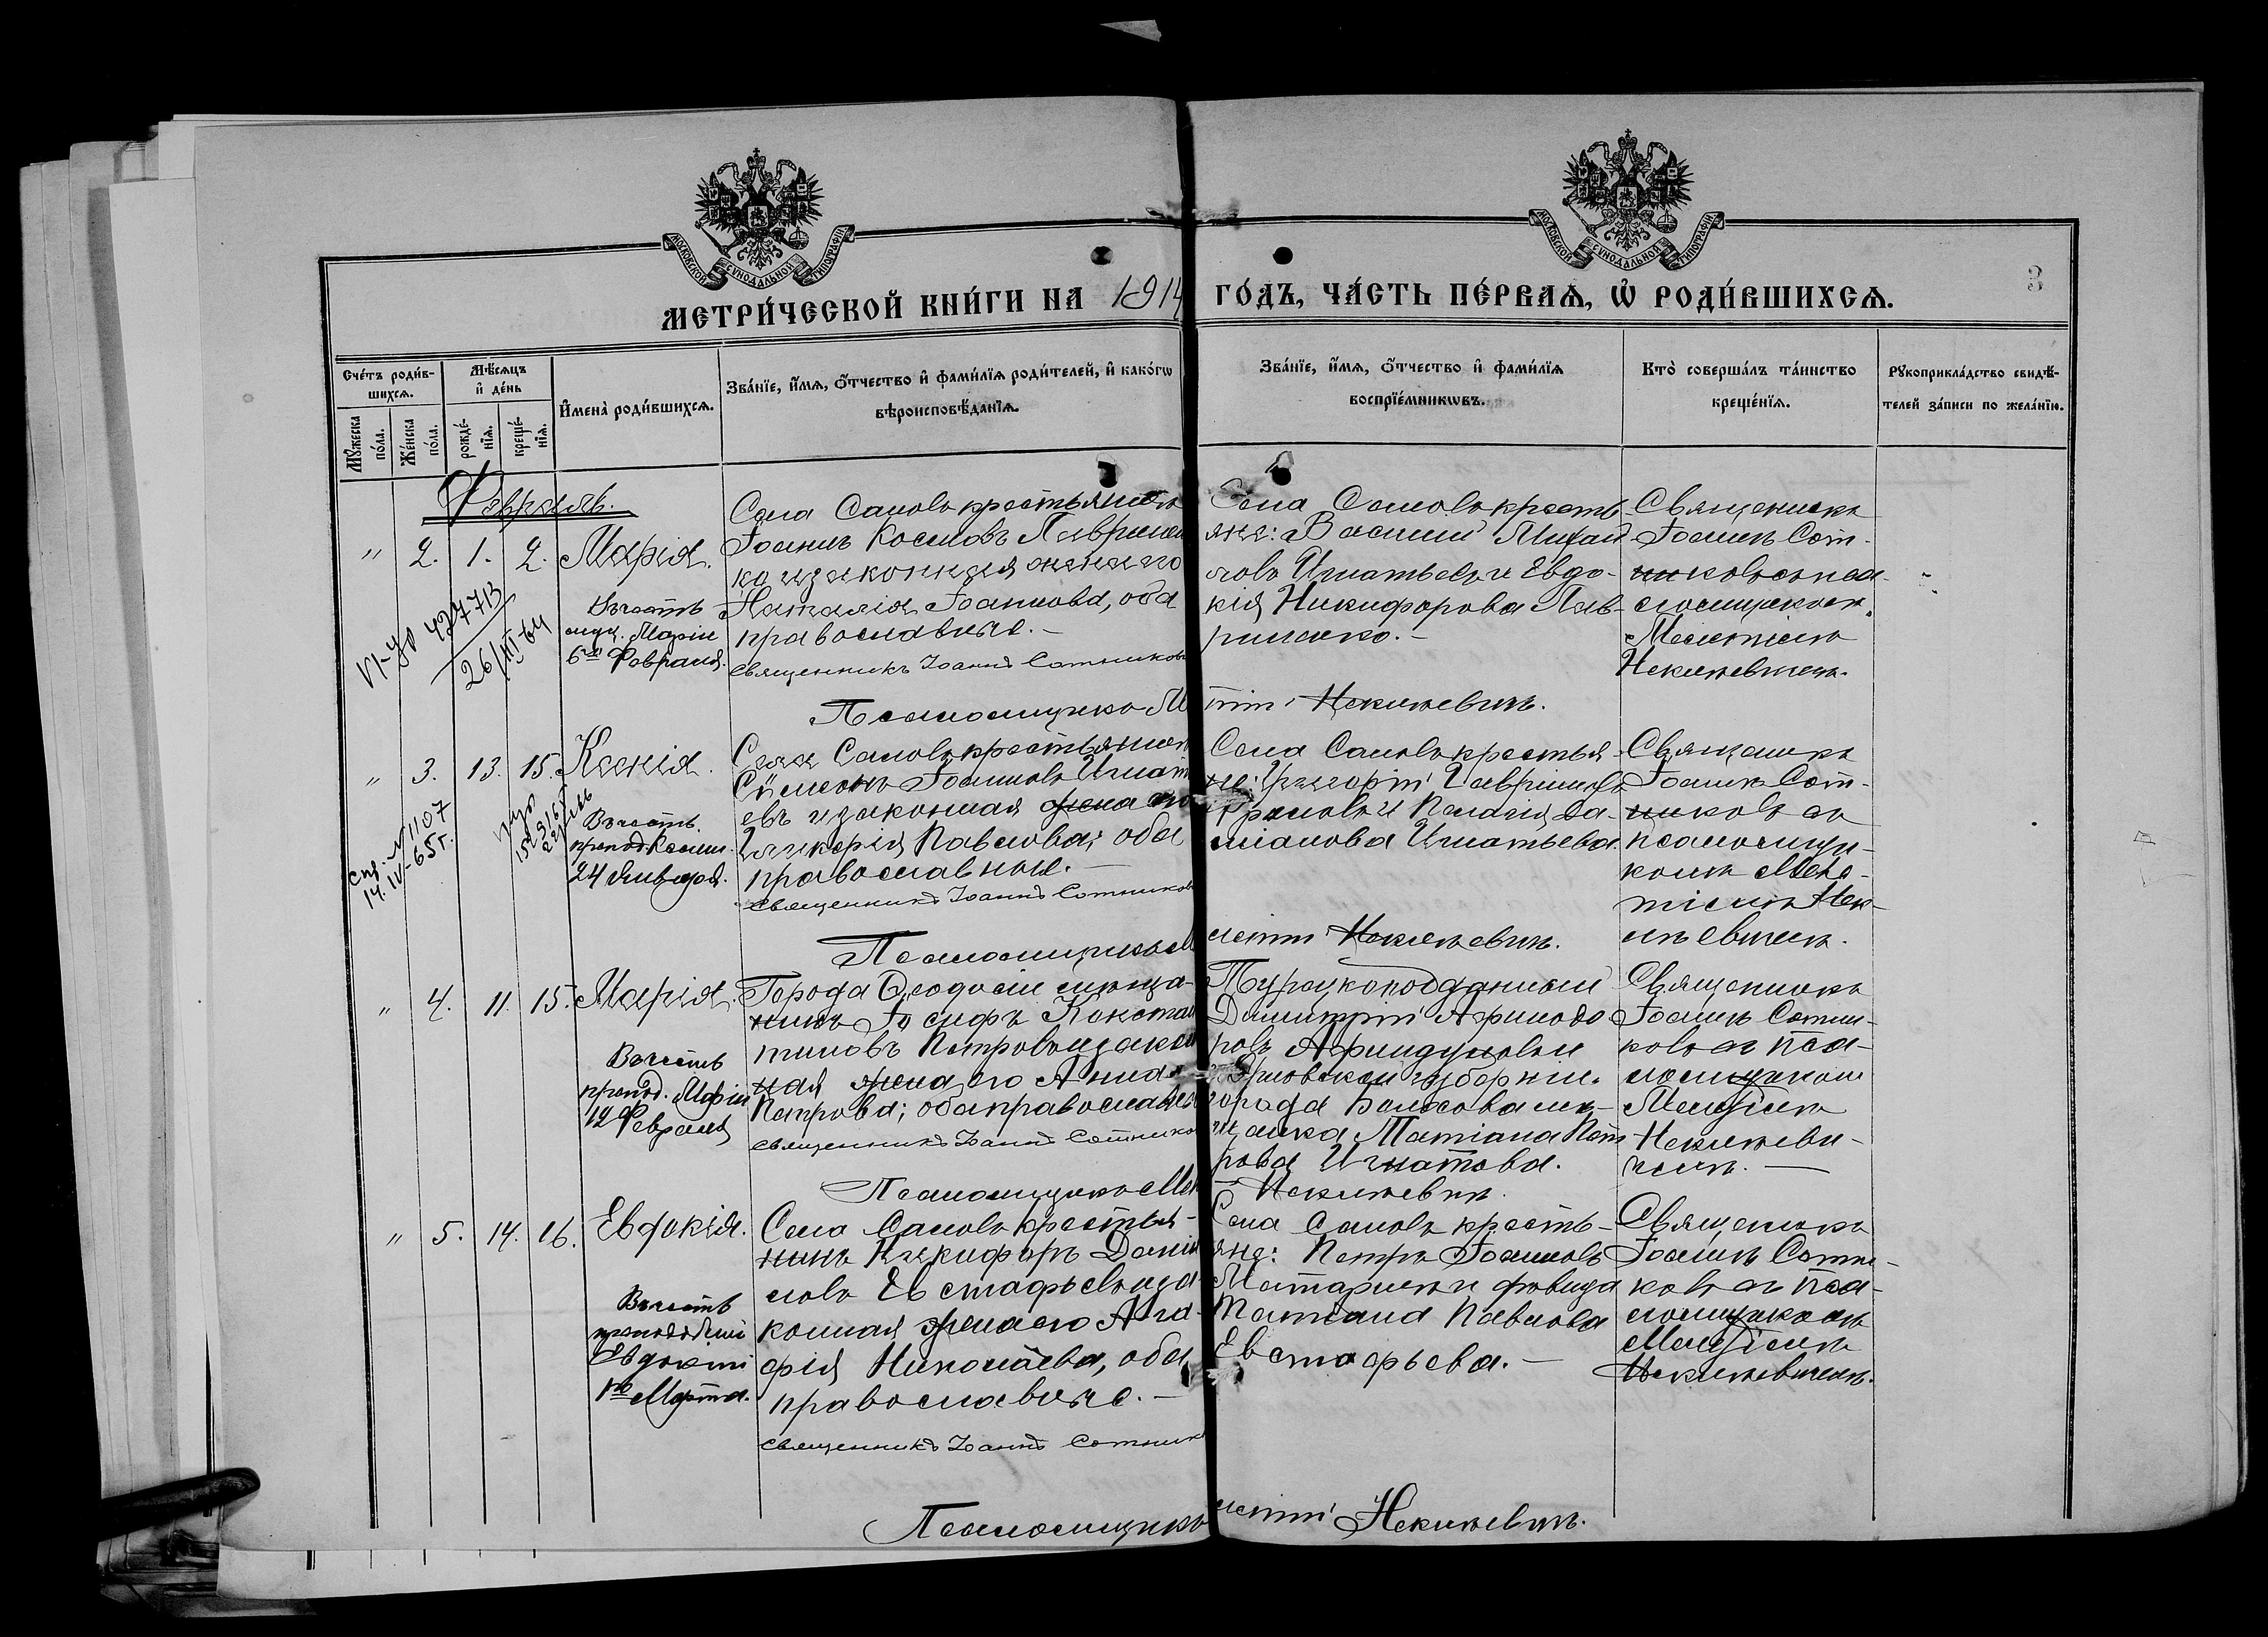 МОСКОВСКОЙ СѴНОДАЛЬНОЙ ТИПОГРАФІИ
МОСКОВСКОЙ СѴНОДАЛЬНОЙ ТИПОГРАФІИ
3
МЕТРИ́ЧЕСКОЙ КНИ́ГИ НА 1914 ГО́ДЪ, ЧА́СТЬ ПЕ́РВАѦ, Ѡ҆ РОДИ́ВШИХСѦ.
Сче́тъ роди́в-
шихсѧ.
Мꙋ́жеска по́ла.
Же́нска по́ла.
Мѣ́сѧцъ
и҆ де́нь
рожде́-
нїѧ.
креще́-
нїѧ.
И҆мена̀ роди́вшихсѧ.
Зва́нїе, и҆́мѧ, ѻ҆́тчество и҆ фами́лїѧ роди́телей, и҆ како́гѡ
вѣроисповѣ́данїѧ.
Зва́нїе, и҆́мѧ, ѻ҆́тчество и҆ фами́лїѧ
воспрїе́мникѡвъ.
Кто̀ соверша́лъ та́инство
креще́нїѧ.
Рꙋкоприкла́дство свидѣ́-
телей за́писи по жела́нїю.
Февраль.
" 2. 1. 2. Марія.
Въ честь
муч. Маріи
6го Февраля.
427713
26/III-64
Села Саловъ крестьянинъ
Іоаннъ Космовъ Лавринен
ко и законная жена его
Наталія Іоаннова, оба
православные.-
Священникъ Іоаннъ Сотниковъ
Села Саловъ кресть-
яне: Василій Михай
ловъ Игнатьевъ и Евдо-
кія Никифорова Лав-
риненко.-
Священникъ
Іоаннъ Сот-
никовъ съ пса-
ломщикомъ
Мелетіемъ
Некижевичемъ.
Псаломщикъ М тій Некижевичъ.
" 3. 13. 15. Ксенія.
Въ честь
препод. Ксении
24 Января.
№ 1107
14.IV-65г.
Села Саловъ крестьянинъ
Сѵмеонъ Іоанновъ Игнать
евъ и законная жена его
Гликерія Павлова; оба
православные.-
Священникъ Іоаннъ Сотниковъ
Села Саловъ крестья-
не: Григорій Гавриловъ
и Пелагія Да-
міанова Игнатьева
Священникъ
Іоаннъ Сот-
никовъ съ
псаломщи-
комъ Меле-
тіемъ Нек-
ижевичемъ.
Псаломщикъ М летій Некижевичъ.
" 4. 11. 15. Марія.
Въ честь
препод. Маріи
12 Февраля
Города Ѳеодосіи мѣща-
нинъ Іосифъ Констан
тиновъ Петровъ и закон
ная жена его Анна
Петрова; оба православные
Священникъ Іоаннъ Сотников
Турецкоподданный
Димитрій
Орловской губерніи
города Болхова мѣ-
щанка Татіана Пет
рова Игнатова.
Священникъ
Іоаннъ Сотни-
ковъ съ пса-
ломщикомъ
Мелетіемъ
Некижеви-
чемъ.-
Псаломщикъ Меле Некижевичъ.
" 5. 14. 16. Евдокія.
Въ честь
преподобной
Евдокіи
1го Марта.
Села Саловъ крестья-
нинъ Никифоръ Дани
ловъ Евстафьевъ и за-
конная жена его Ага-
фія Николаева, оба
православные.-
Священникъ Іоаннъ Сотник
Села Саловъ кресть-
яне: Петръ Іоанновъ
и девица
Татіана Павлова
Евстафьева.-
Священникъ
Іоаннъ Сотни-
ковъ съ пса-
ломщикомъ
Мелетіемъ
Некижевичемъ.
Псаломщикъ летій Некижевичъ.